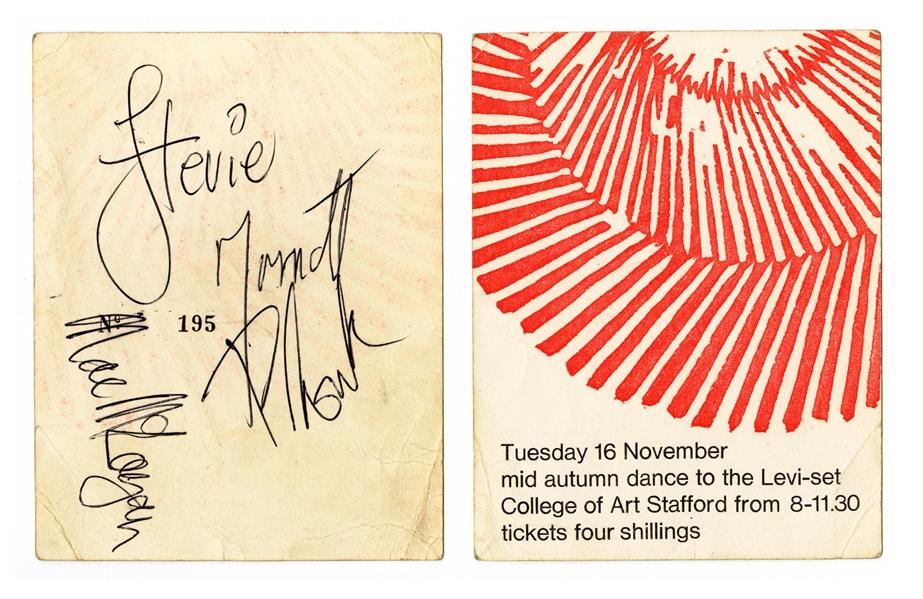 Stevie
Nº 195
Tuesday 16 November
mid autumn dance to the Levi-set
College of Art Stafford from 8-11.30
tickets four shillings